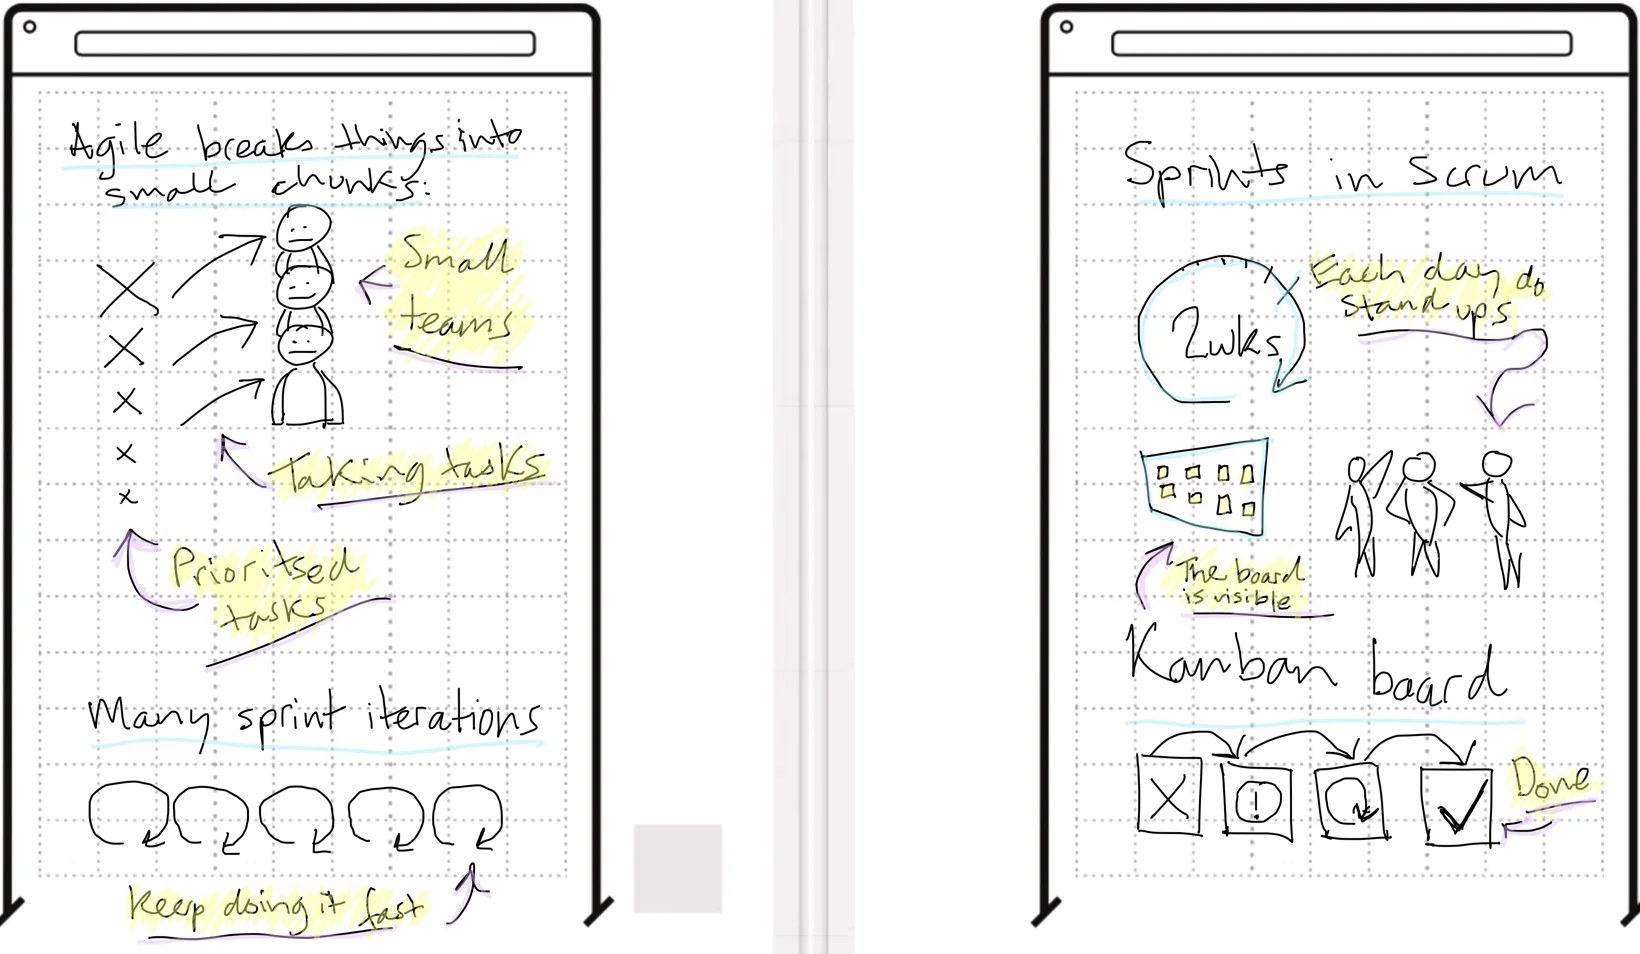 Agile breaks things into
small chunks:
Small
teams
Taking tasks
Prioritsed
tasks
Many sprint iterations
Keep doing it fast
Sprints in Scrum
Each day do
stand ups
2wks
The board
is visible
Kanban board
!
Done